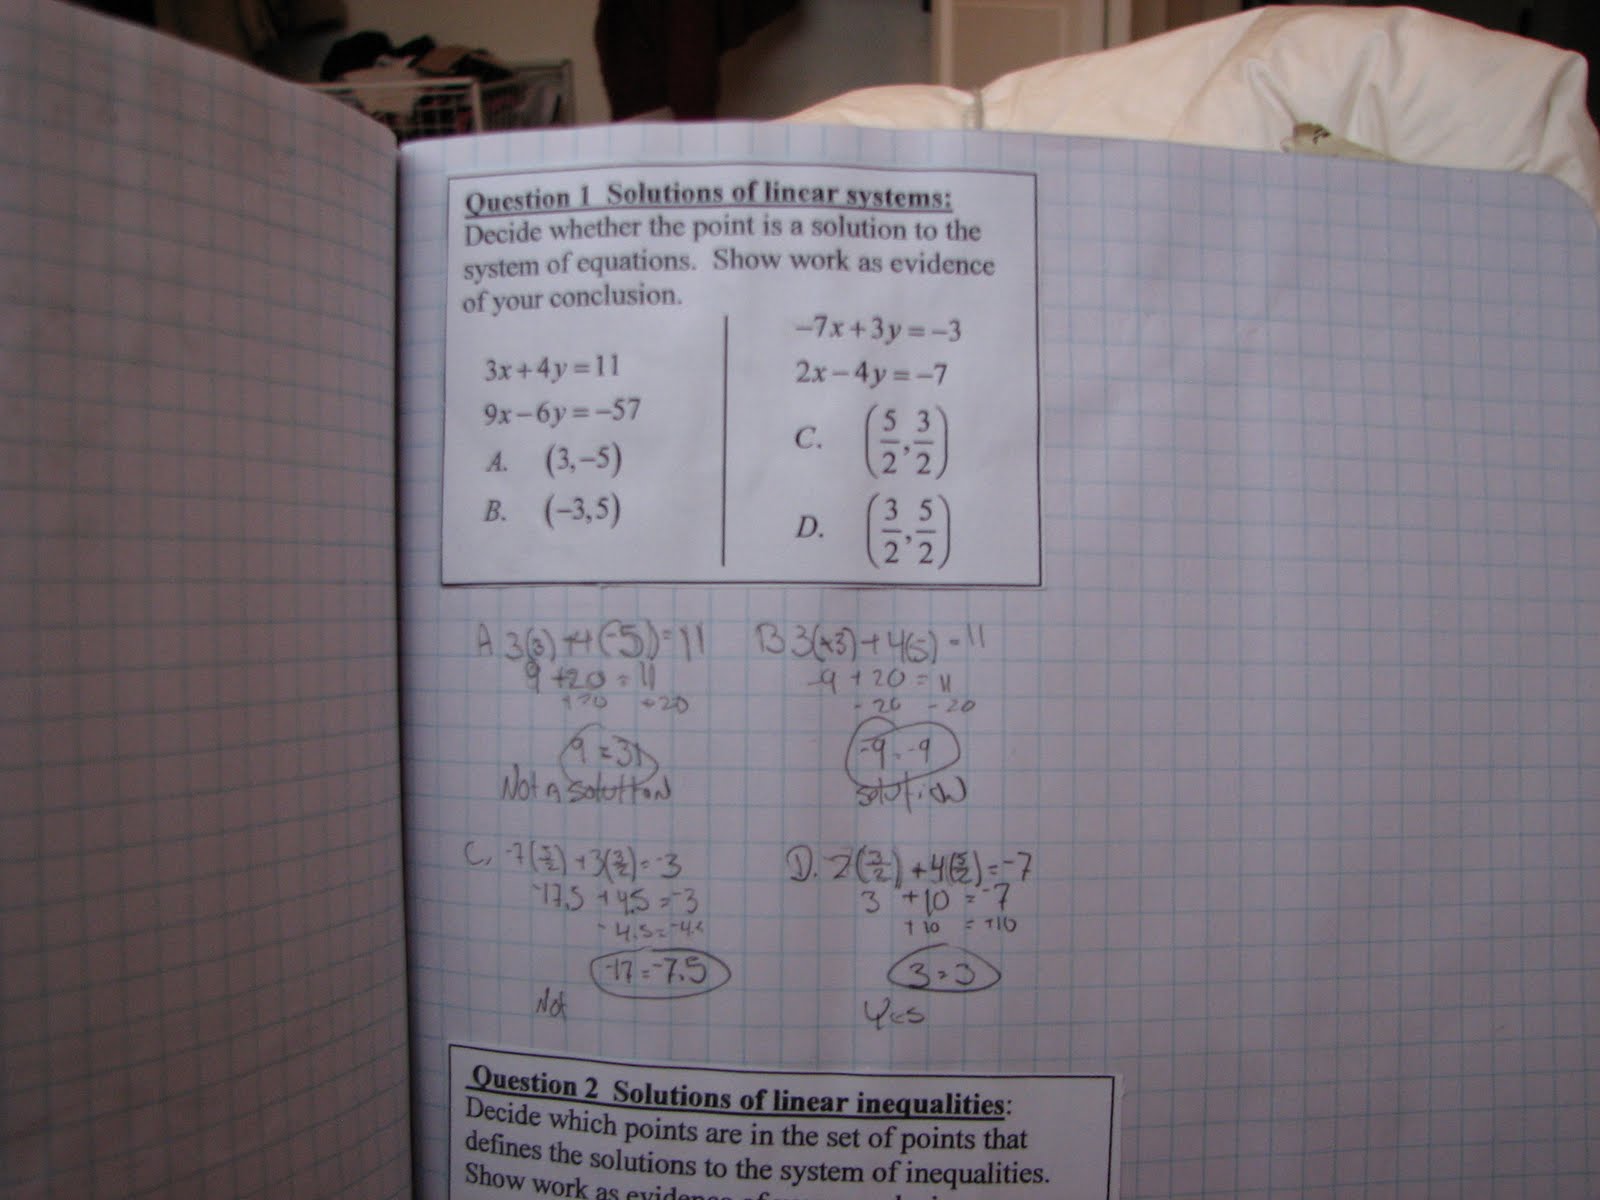 Question 1 Solutions of linear systems:
Decide whether the point is a solution to the
system of equations. Show work as evidence
of your conclusion.
3x+4y=11
9x-6y=-57
A. (3,-5)
B. (-3,5)
-7x+3y=-3
2x-4y=-7
C. (5/2, 3/2)
D. (3/2, 5/2)
A 3(3)+4(-5)=11
9 +20 = 11
+20 +20
9 = 31
Not a solution
B 3(-3)+4(5)=11
-9 +20 = 11
-20 -20
-9 = -9
solution
C. -7(5/2)+3(3/2)=-3
-17.5 +4.5 =-3
-4.5=-4.5
-17=-7.5
Not
D. 2(3/2)+4(5/2)=-7
3 +10 = -7
+10 = +10
3=3
Yes
Question 2 Solutions of linear inequalities:
Decide which points are in the set of points that
defines the solutions to the system of inequalities.
Show work as